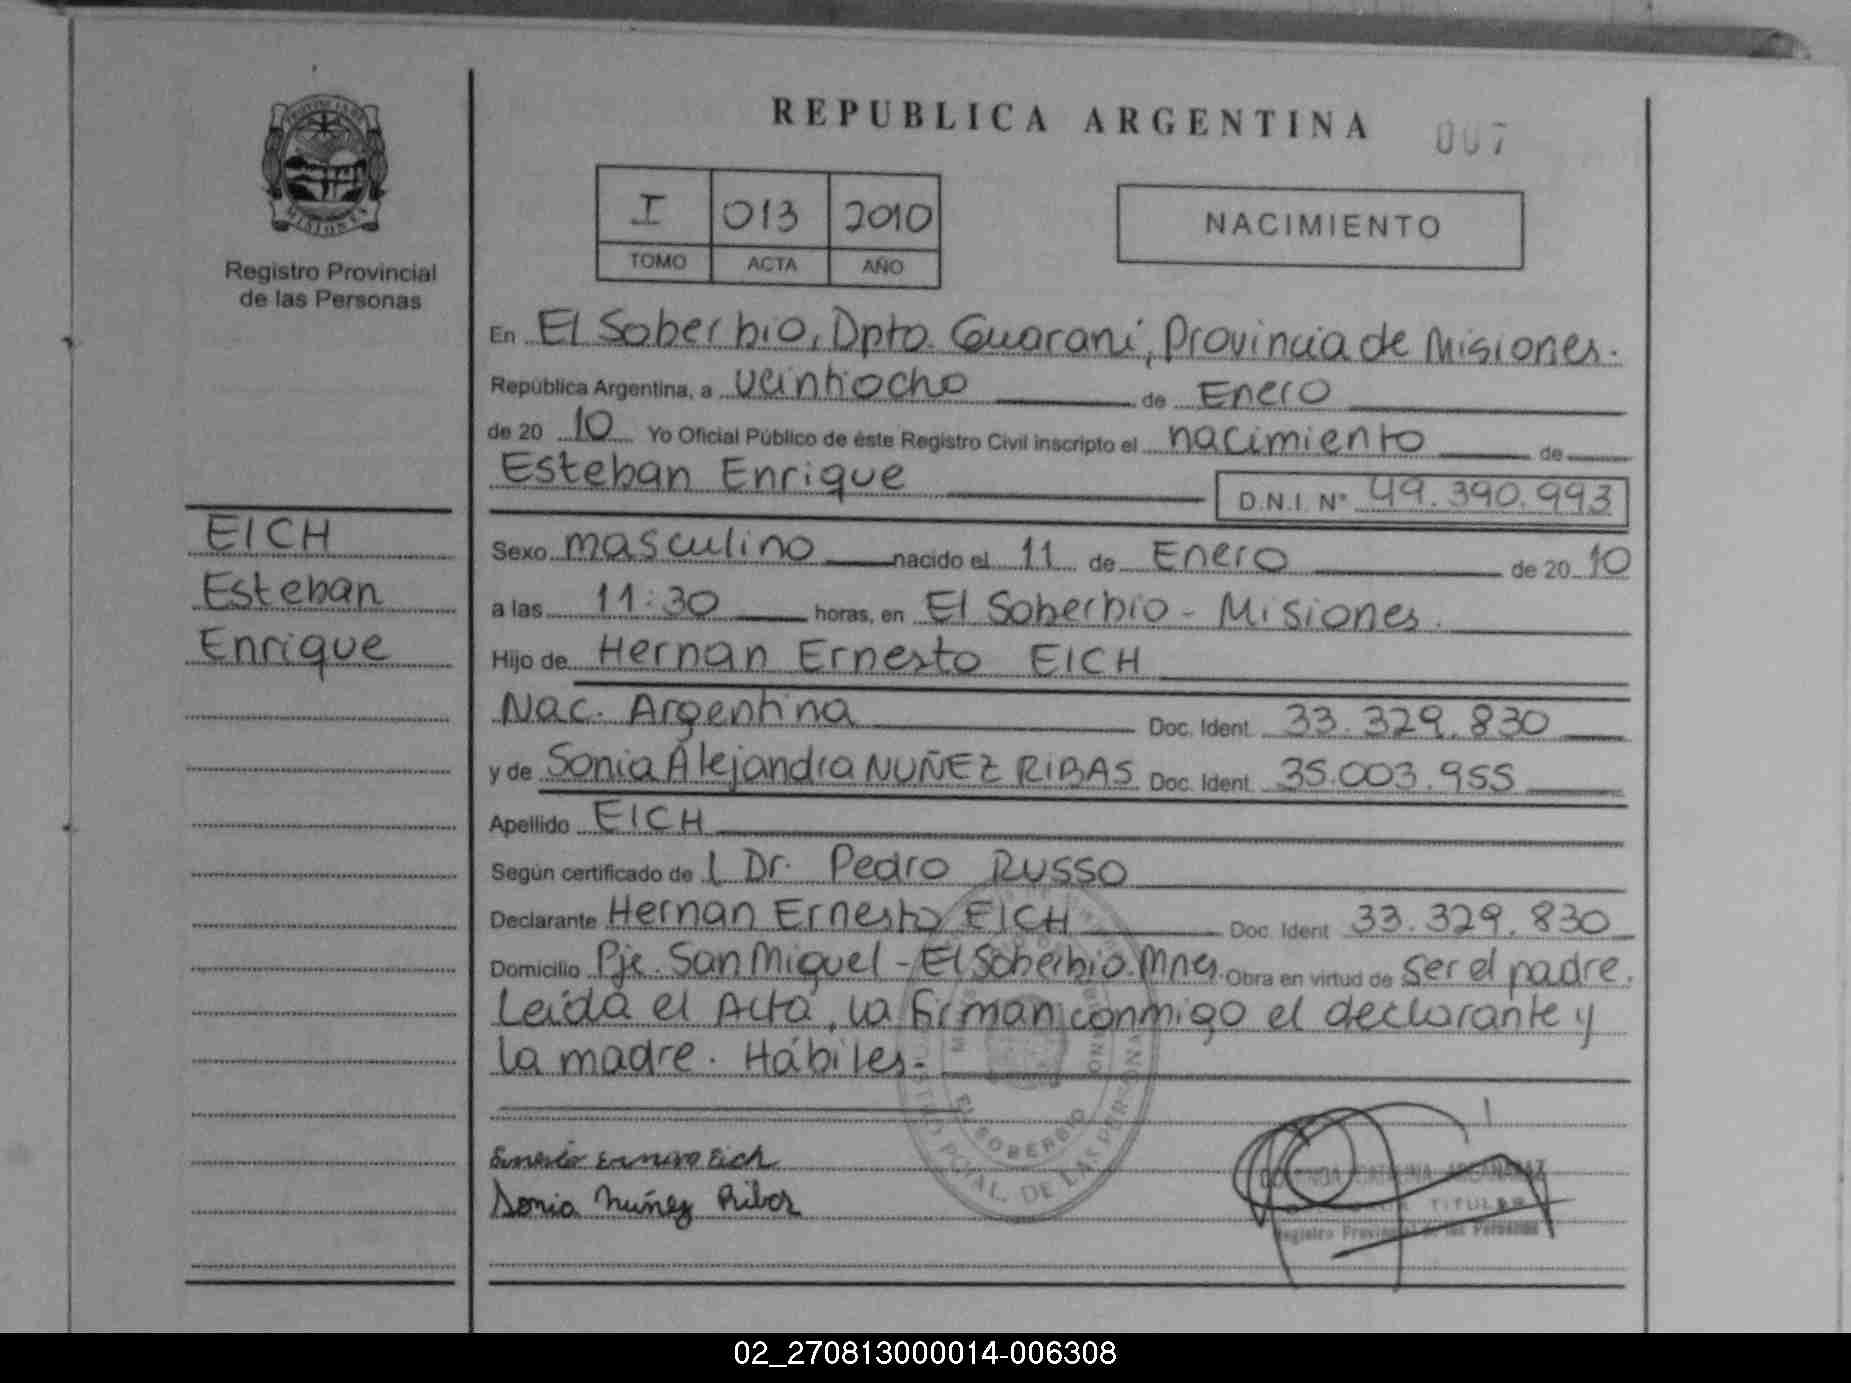 REPUBLICA ARGENTINA
007
PROVINCIA DE
MISIONES
Registro Provincial
de las Personas
I 013 2010
TOMO ACTA AÑO
NACIMIENTO
En El Soberbio, Dpto. Guaraní, Provincia de Misiones.
República Argentina, a veintiocho de Enero
de 20 10 Yo Oficial Público de éste Registro Civil inscripto el nacimiento de
Esteban Enrique D.N.I. N° 49.390.993
EICH
Esteban
Enrique
Sexo masculino nacido el 11 de Enero de 20 10
a las 11:30 horas, en El Soberbio - Misiones.
Hijo de Hernan Ernesto EICH
Nac. Argentina Doc. Ident. 33.329.830
y de Sonia Alejandra NUÑEZ RIBAS Doc. Ident. 35.003.955
Apellido EICH
Según certificado de l Dr. Pedro Russo
Declarante Hernan Ernesto EICH Doc. Ident 33.329.830
Domicilio Pje. San Miguel - El Soberbio. Mnes. Obra en virtud de ser el padre.
Leída el Acta, la firman conmigo el declarante y
la madre. Hábiles.
EL SOBERBIO
PCIAL. DE LAS PERSONAS
Eich
Sonia Nuñez Ribas
TITULAR
Registro Provincial de las Personas
02_270813000014-006308